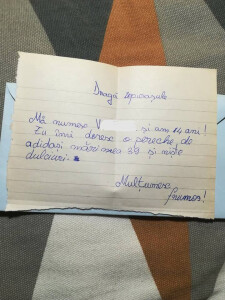 Dragă
Mă numesc V și am 14 ani!
Eu îmi doresc o pereche de
adidași mărimea 39 și niște
dulciuri.
Mulțumesc
frumos!